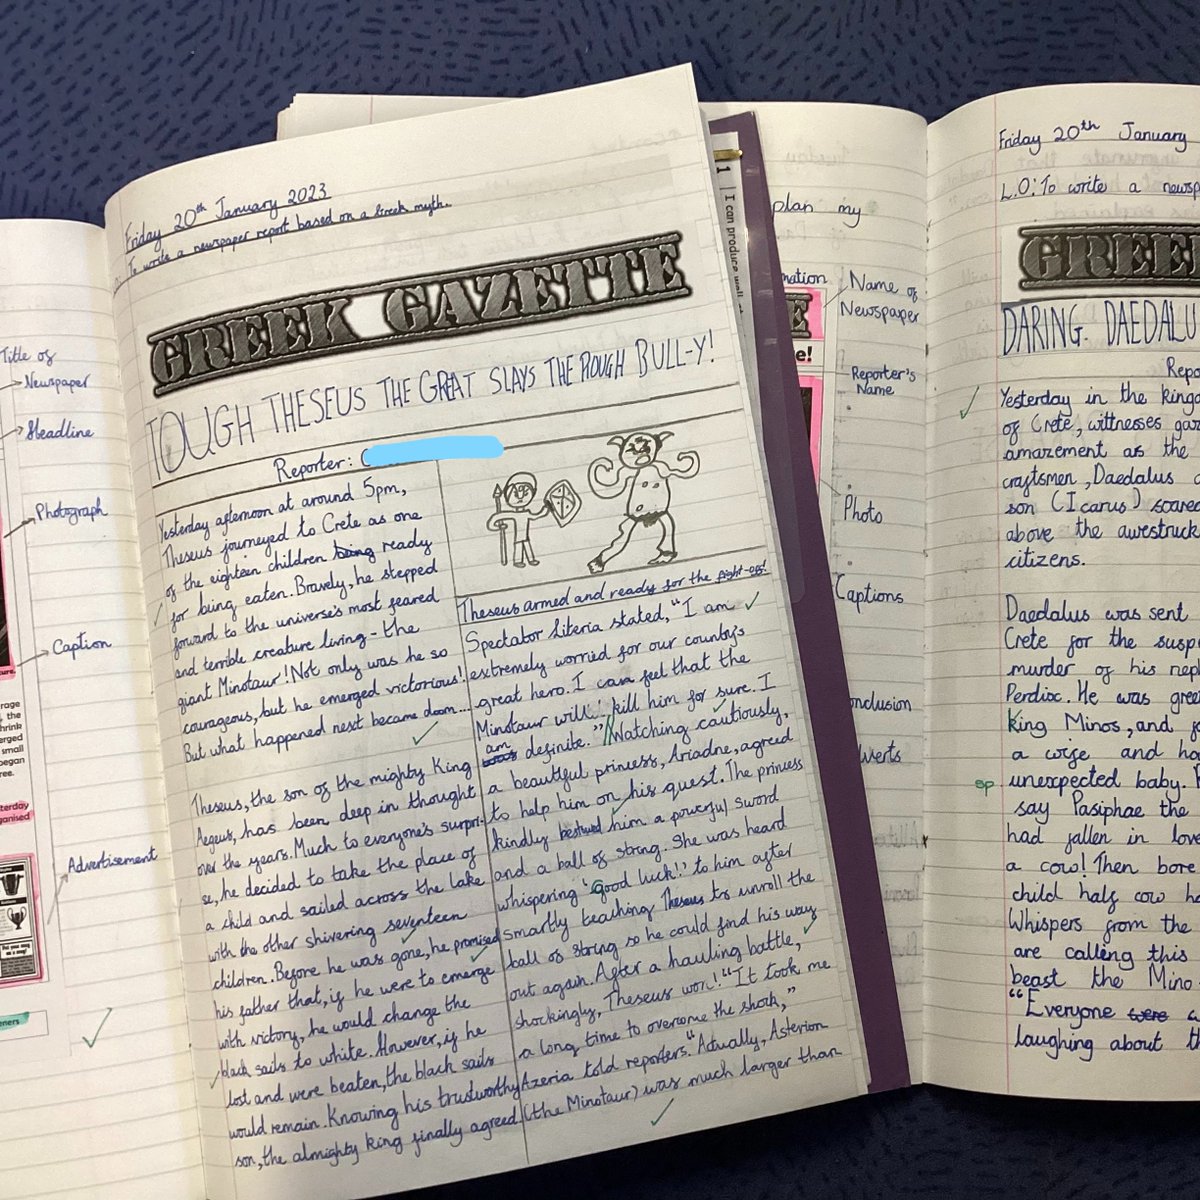 Title of
Newspaper
Headline
Photograph
Caption
Advertisement
Friday 20th January 2023
To write a newspaper report based on a Greek myth.
GREEK GAZETTE
TOUGH THESEUS THE GREAT SLAYS THE ROUGH BULL-Y!
Reporter:
Yesterday afternoon at around 5pm,
Theseus journeyed to Crete as one
of the eighteen children being ready
for being eaten. Bravely, he stepped
forward to the universe's most feared
and terrible creature living - the
giant Minotaur! Not only was he so
courageous, but he emerged victorious!
But what happened next became doom....
Theseus, the son of the mighty King
Aegeus, has been deep in thought
over the years. Much to everyone's surpri-
se, he decided to take the place of
a child and sailed across the lake
with the other shivering seventeen
children. Before he was gone, he promised
his father that, if he were to emerge
with victory, he would change the
black sails to white. However, if he
lost and were beaten, the black sails
would remain. Knowing his trustworthy
son, the almighty king finally agreed.
Theseus armed and ready for the fight-off!
Spectator Literia stated, "I am
extremely worried for our county's
great hero. I can feel that the
Minotaur will kill him for sure. I
am
was definite."//Watching cautiously,
a beautiful princess, Ariadne, agreed
to help him on his quest. The princess
kindly bestowed him a powerful sword
and a ball of string. She was heard
whispering 'good luck!' to him after
smartly teaching Theseus to unroll the
ball of string so he could find his way
out again. After a hauling battle,
shockingly, Theseus won! "It took me
a long time to overcome the shock,"
Azeria told reporters. "Actually, Asterion
(the Minotaur) was much larger than
1 I can produce well
plan my
mation
Name of
Newspaper
Reporter's
Name
Photo
Captions
nclusion
verts
Friday 20th January
L.O: To write a newsp
GREE
DARING DAEDALU
Repo
Yesterday in the kingd
of Crete, wittnesses gaz
amazement as the
craftsmen, Daedalus a
son (Icarus) soared
above the awestruck
citizens.
Daedalus was sent
Crete for the susp
murder of his neph
Perdix. He was gree
king Minos, and f
a wife and ha
sp unexpected baby.
say Pasiphae the
had fallen in love
a cow! Then bore
child half cow ha
Whispers from the
are calleng this
beast the Mino
"Everyone were w
laughing about th